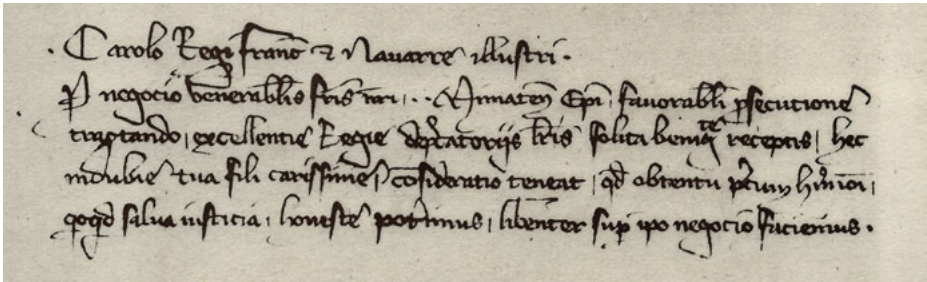 · Carolo Regi Franc et Navarre illustri ·
P negocio venerabilis fris nri, · · Mimaten Epi, favorabili psecutione
tractando, excellentie Regie deprecatoriis lris solita benigte receptis, hec
indubie tua fili carissime, consideratio teneat, qd obtentu precum hmoi,
quod salva iusticia, honeste poterimus, libenter sup ipo negocio faciemus ·